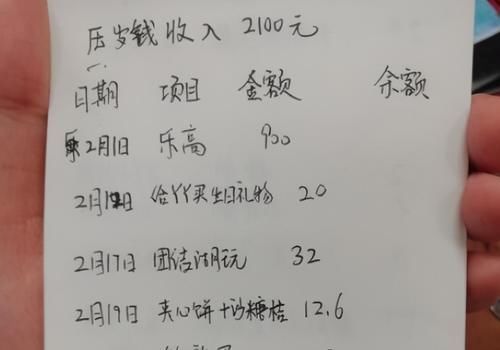 压岁钱收入 2100元
日期 项目 金额 余额
2月1日 乐高 900
2月12日 给丫丫买生日礼物 20
2月17日 团结湖玩 32
2月19日 夹心饼+沙糖桔 12.6